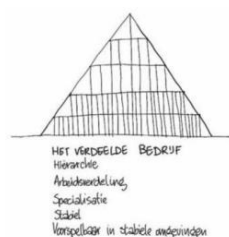 HET VERDEELDE BEDRIJF
Hiërarchie
Arbeidsverdeling
Specialisatie
Stabiel
Voorspelbaar in stabiele omgevingen